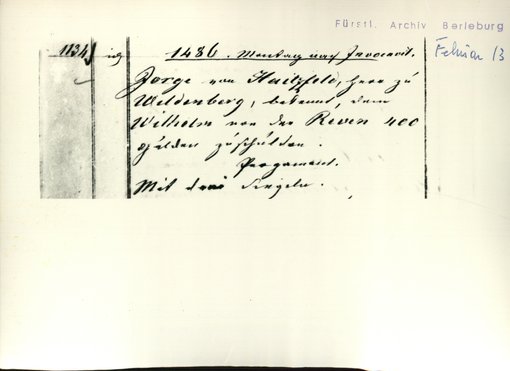 Fürstl. Archiv Berleburg
Februar 13
1134
1486. Montag nach Invocavit.
Jorge von Hatzfeld, Herr zu
Wildenberg, bekennt, dem
Wilhelm von der Reven 400
gulden zu schulden.
Pergament.
Mit drei Siegeln.